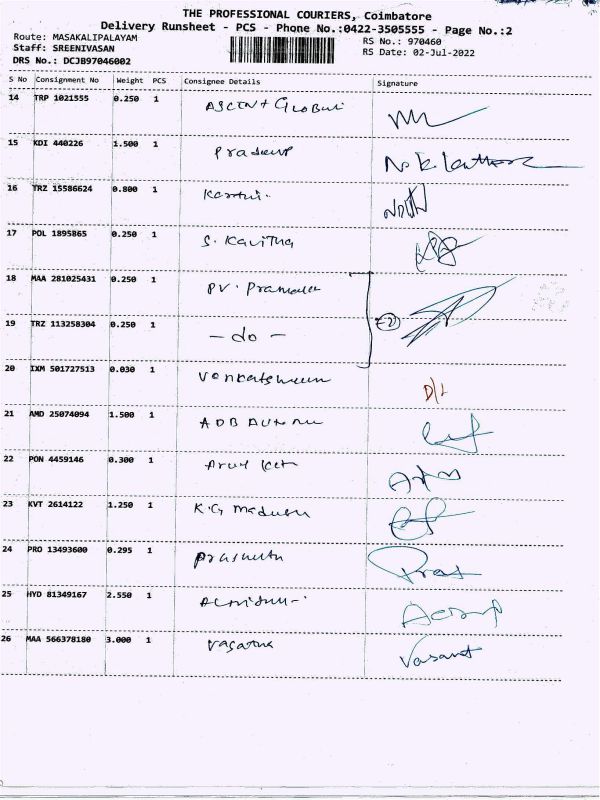 THE PROFESSIONAL COURIERS, Coimbatore
Delivery Runsheet - PCS - Phone No.:0422-3505555 - Page No.:2
Route: MASAKALIPALAYAM
RS No.: 970460
Staff: SREENIVASAN
RS Date: 02-Jul-2022
DRS No.: DCJB97046002
S No Consignment No Weight PCS Consignee Details Signature
14 TRP 1021555 0.250 1
15 KDI 440226 1.500 1 Pradeep
16 TRZ 15586624 0.800 1
17 POL 1895865 0.250 1 S. Kavitha
18 MAA 281025431 0.250 1 PV.
19 TRZ 113258304 0.250 1 - do -
20 IXM 501727513 0.030 1 D/L
21 AMD 25074094 1.500 1 ADB
22 PON 4459146 0.300 1 Arul
23 KVT 2614122 1.250 1 K.G
24 PRO 13493600 0.295 1 Pras
25 HYD 81349167 2.550 1
26 MAA 566378180 3.000 1 Vasant